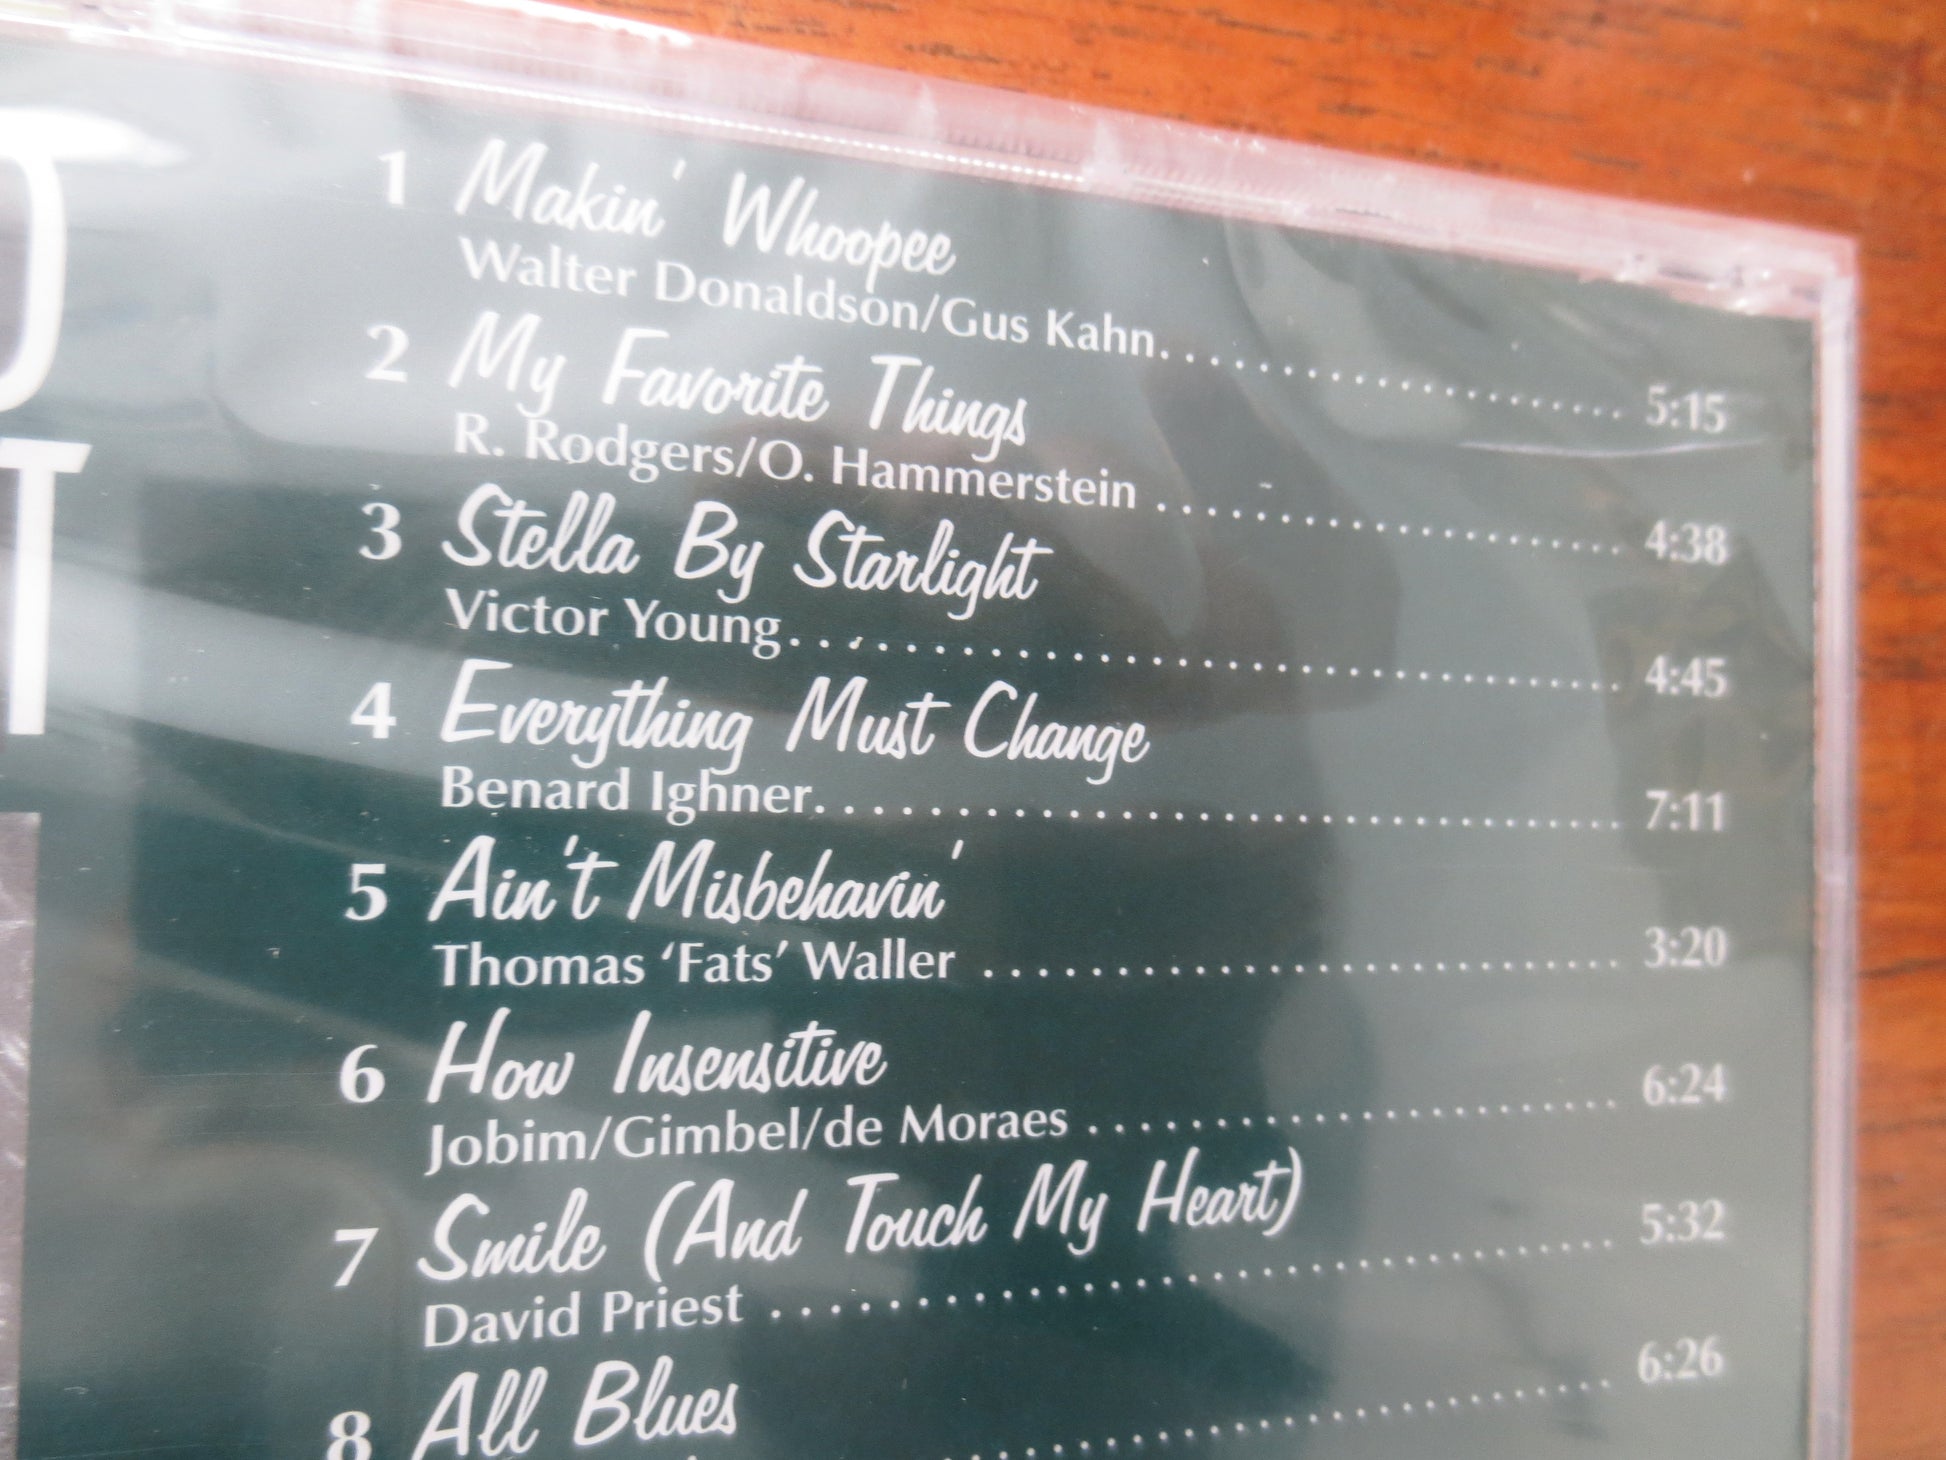 1 Makin' Whoopee
Walter Donaldson/Gus Kahn. . . . . . . . . . . . . . . . . . . . . . . . . . 5:15
2 My Favorite Things
R. Rodgers/O. Hammerstein . . . . . . . . . . . . . . . . . . . . . . . . . . 4:38
3 Stella By Starlight
Victor Young. . . . . . . . . . . . . . . . . . . . . . . . . . . . . . . . . . 4:45
4 Everything Must Change
Benard Ighner. . . . . . . . . . . . . . . . . . . . . . . . . . . . . . . . . 7:11
5 Ain't Misbehavin'
Thomas ‘Fats’ Waller . . . . . . . . . . . . . . . . . . . . . . . . . . . . 3:20
6 How Insensitive
Jobim/Gimbel/de Moraes . . . . . . . . . . . . . . . . . . . . . . . . . . 6:24
7 Smile (And Touch My Heart)
David Priest . . . . . . . . . . . . . . . . . . . . . . . . . . . . . . . . . . 5:32
8 All Blues
. . . . . . . . . . . . . . . . . . . . . . . . . . 6:26